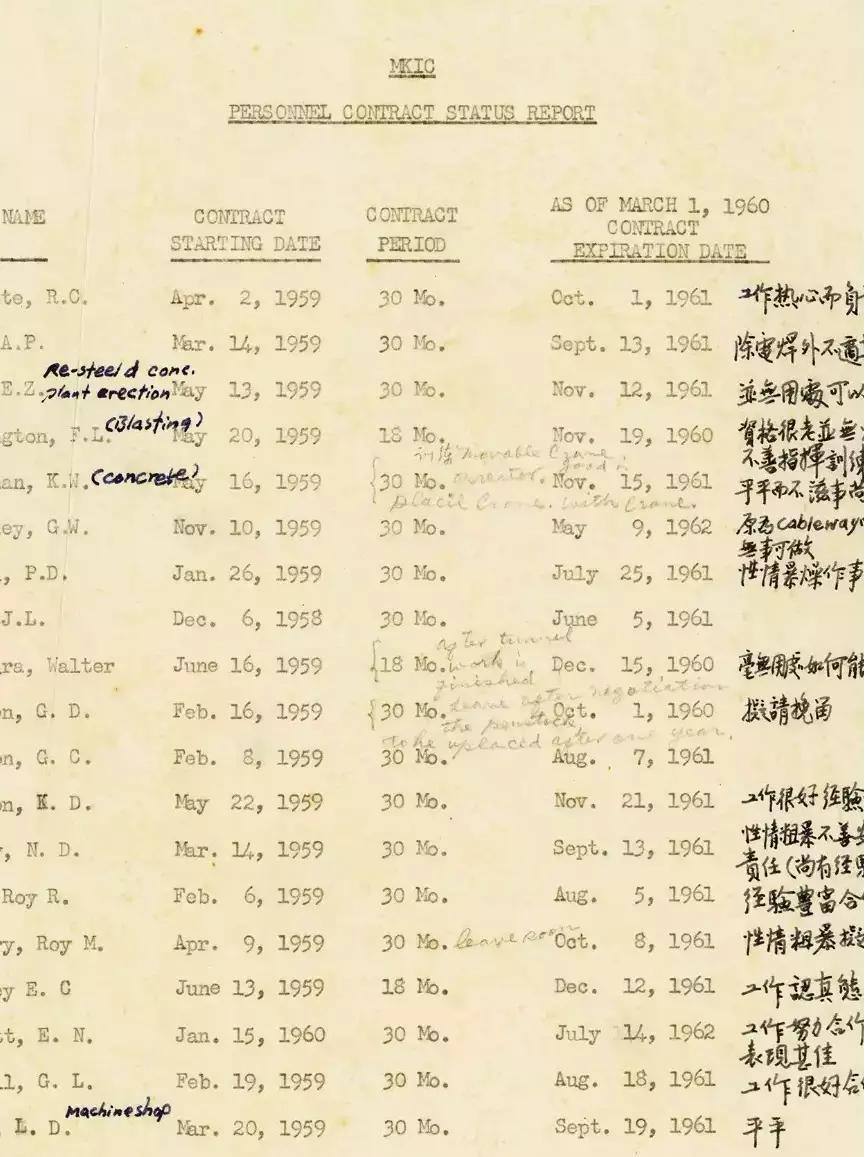 MKIC
PERSONNEL CONTRACT STATUS REPORT
AS OF MARCH 1, 1960
NAME CONTRACT STARTING DATE CONTRACT PERIOD CONTRACT EXPIRATION DATE
te, R.C. Apr. 2, 1959 30 Mo. Oct. 1, 1961 工作热心而身
A.P. Mar. 14, 1959 30 Mo. Sept. 13, 1961 除電焊外不適
Re-steel & conc.
plant erection
E.Z. May 13, 1959 30 Mo. Nov. 12, 1961 並無用處可以
(Blasting)
gton, F.L. May 20, 1959 18 Mo. Nov. 19, 1960 資格很老並無
不善指揮訓練
movable Crane
good
an, K.W. (concrete) May 16, 1959 30 Mo. Nov. 15, 1961 平平而不滋事尚
Crane. with Crane.
ey, G.W. Nov. 10, 1959 30 Mo. May 9, 1962 原為cableway
無事可做
, P.D. Jan. 26, 1959 30 Mo. July 25, 1961 性情暴燥作事
J.L. Dec. 6, 1958 30 Mo. June 5, 1961
after tunnel
ra, Walter June 16, 1959 18 Mo. work is Dec. 15, 1960 毫無用處如何能
finished
leave after negotiation
n, G. D. Feb. 16, 1959 30 Mo. Oct. 1, 1960 擬請挽留
the penstock
to be replaced after one year.
n, G. C. Feb. 8, 1959 30 Mo. Aug. 7, 1961
n, K. D. May 22, 1959 30 Mo. Nov. 21, 1961 工作很好経驗
性情粗暴不善
, N. D. Mar. 14, 1959 30 Mo. Sept. 13, 1961 責任(尚有経驗
Roy R. Feb. 6, 1959 30 Mo. Aug. 5, 1961 経驗豐富合
ry, Roy M. Apr. 9, 1959 30 Mo. leave soon Oct. 8, 1961 性情粗暴擬
ey E. C June 13, 1959 18 Mo. Dec. 12, 1961 工作認真態
tt, E. N. Jan. 15, 1960 30 Mo. July 14, 1962 工作努力合作
表現甚佳
ll, G. L. Feb. 19, 1959 30 Mo. Aug. 18, 1961 工作很好合
Machine shop
L. D. Mar. 20, 1959 30 Mo. Sept. 19, 1961 平平